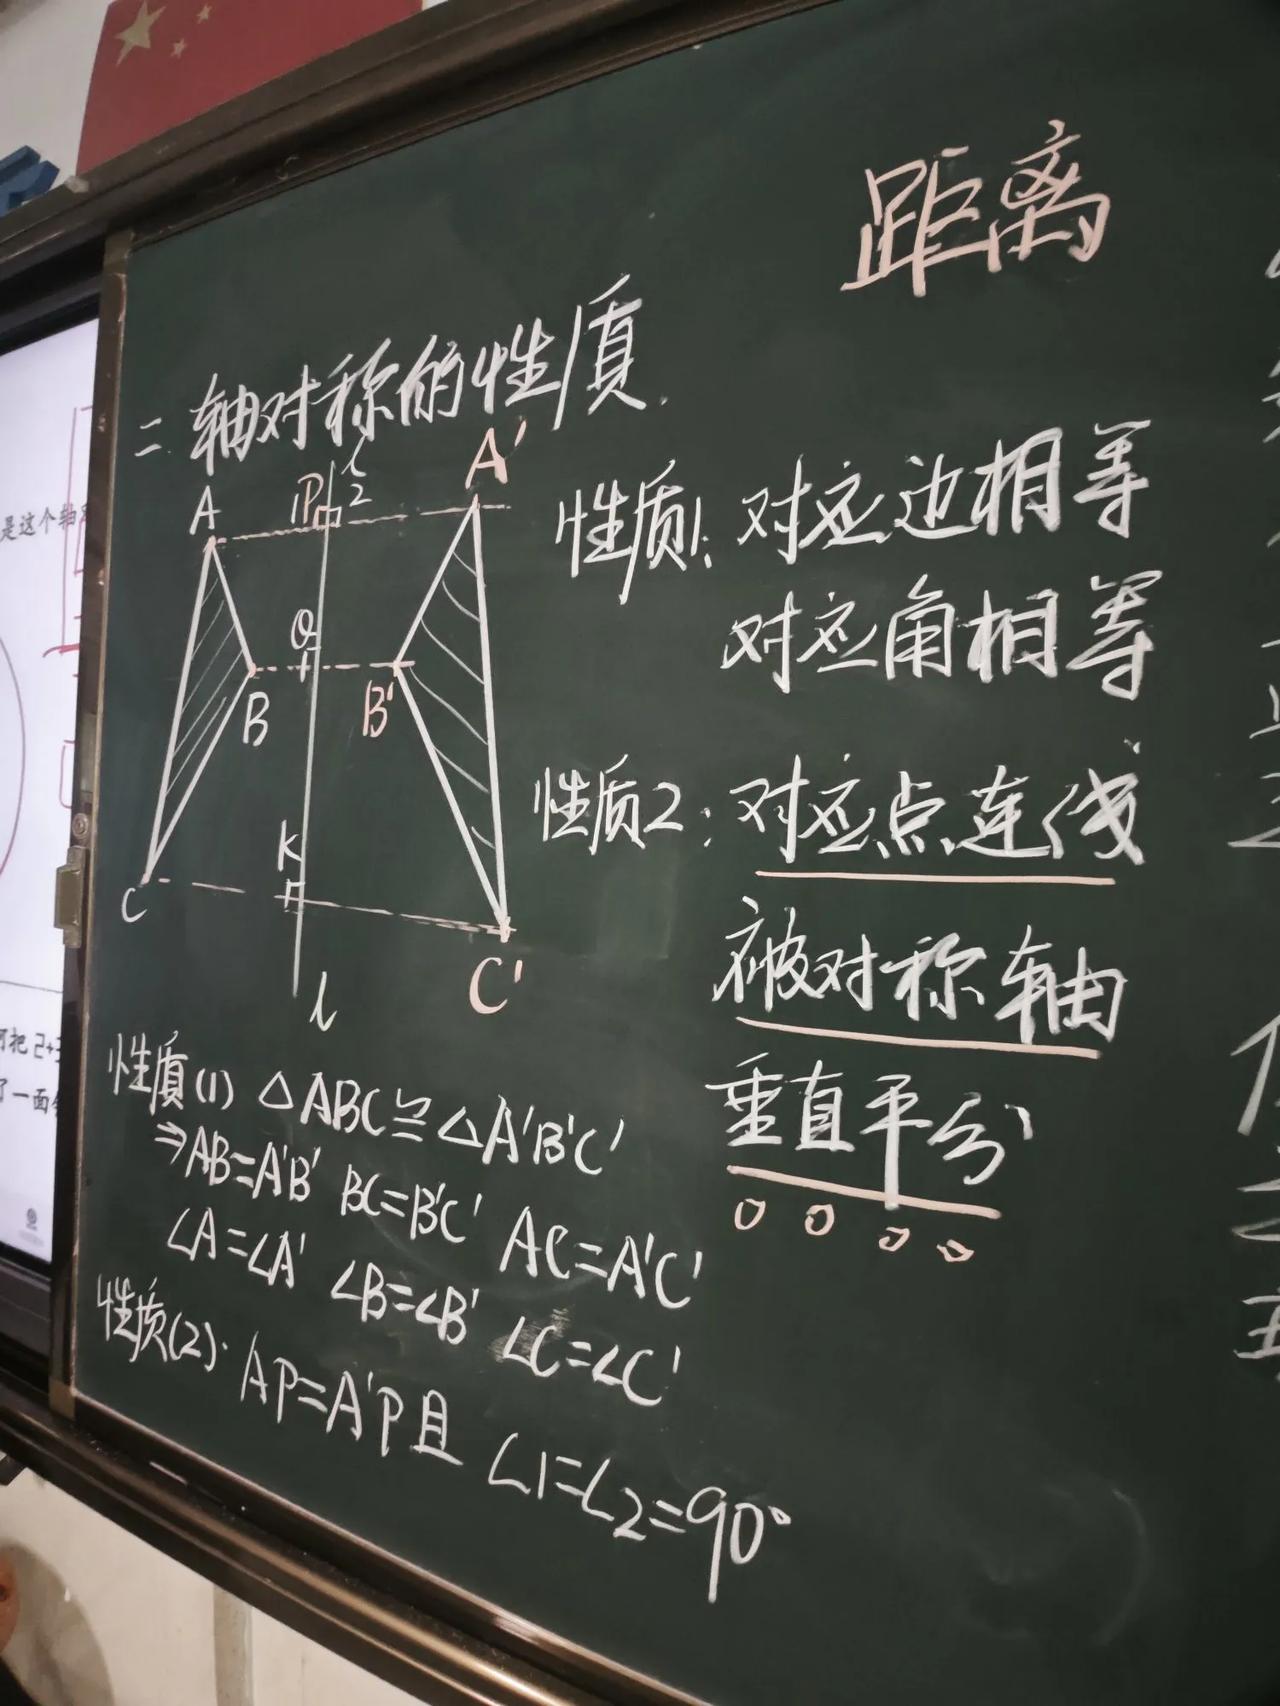 距离
二、轴对称的性质
A P 1 2 l A'
Q
B B'
K
C C'
l
性质1: 对应边相等
对应角相等
性质2: 对应点连线
被对称轴
垂直平分
性质(1) △ABC≌△A'B'C'
⇒AB=A'B' BC=B'C' AC=A'C'
∠A=∠A' ∠B=∠B' ∠C=∠C'
性质(2): AP=A'P且 ∠1=∠2=90°
是这个轴
把2+
了一面